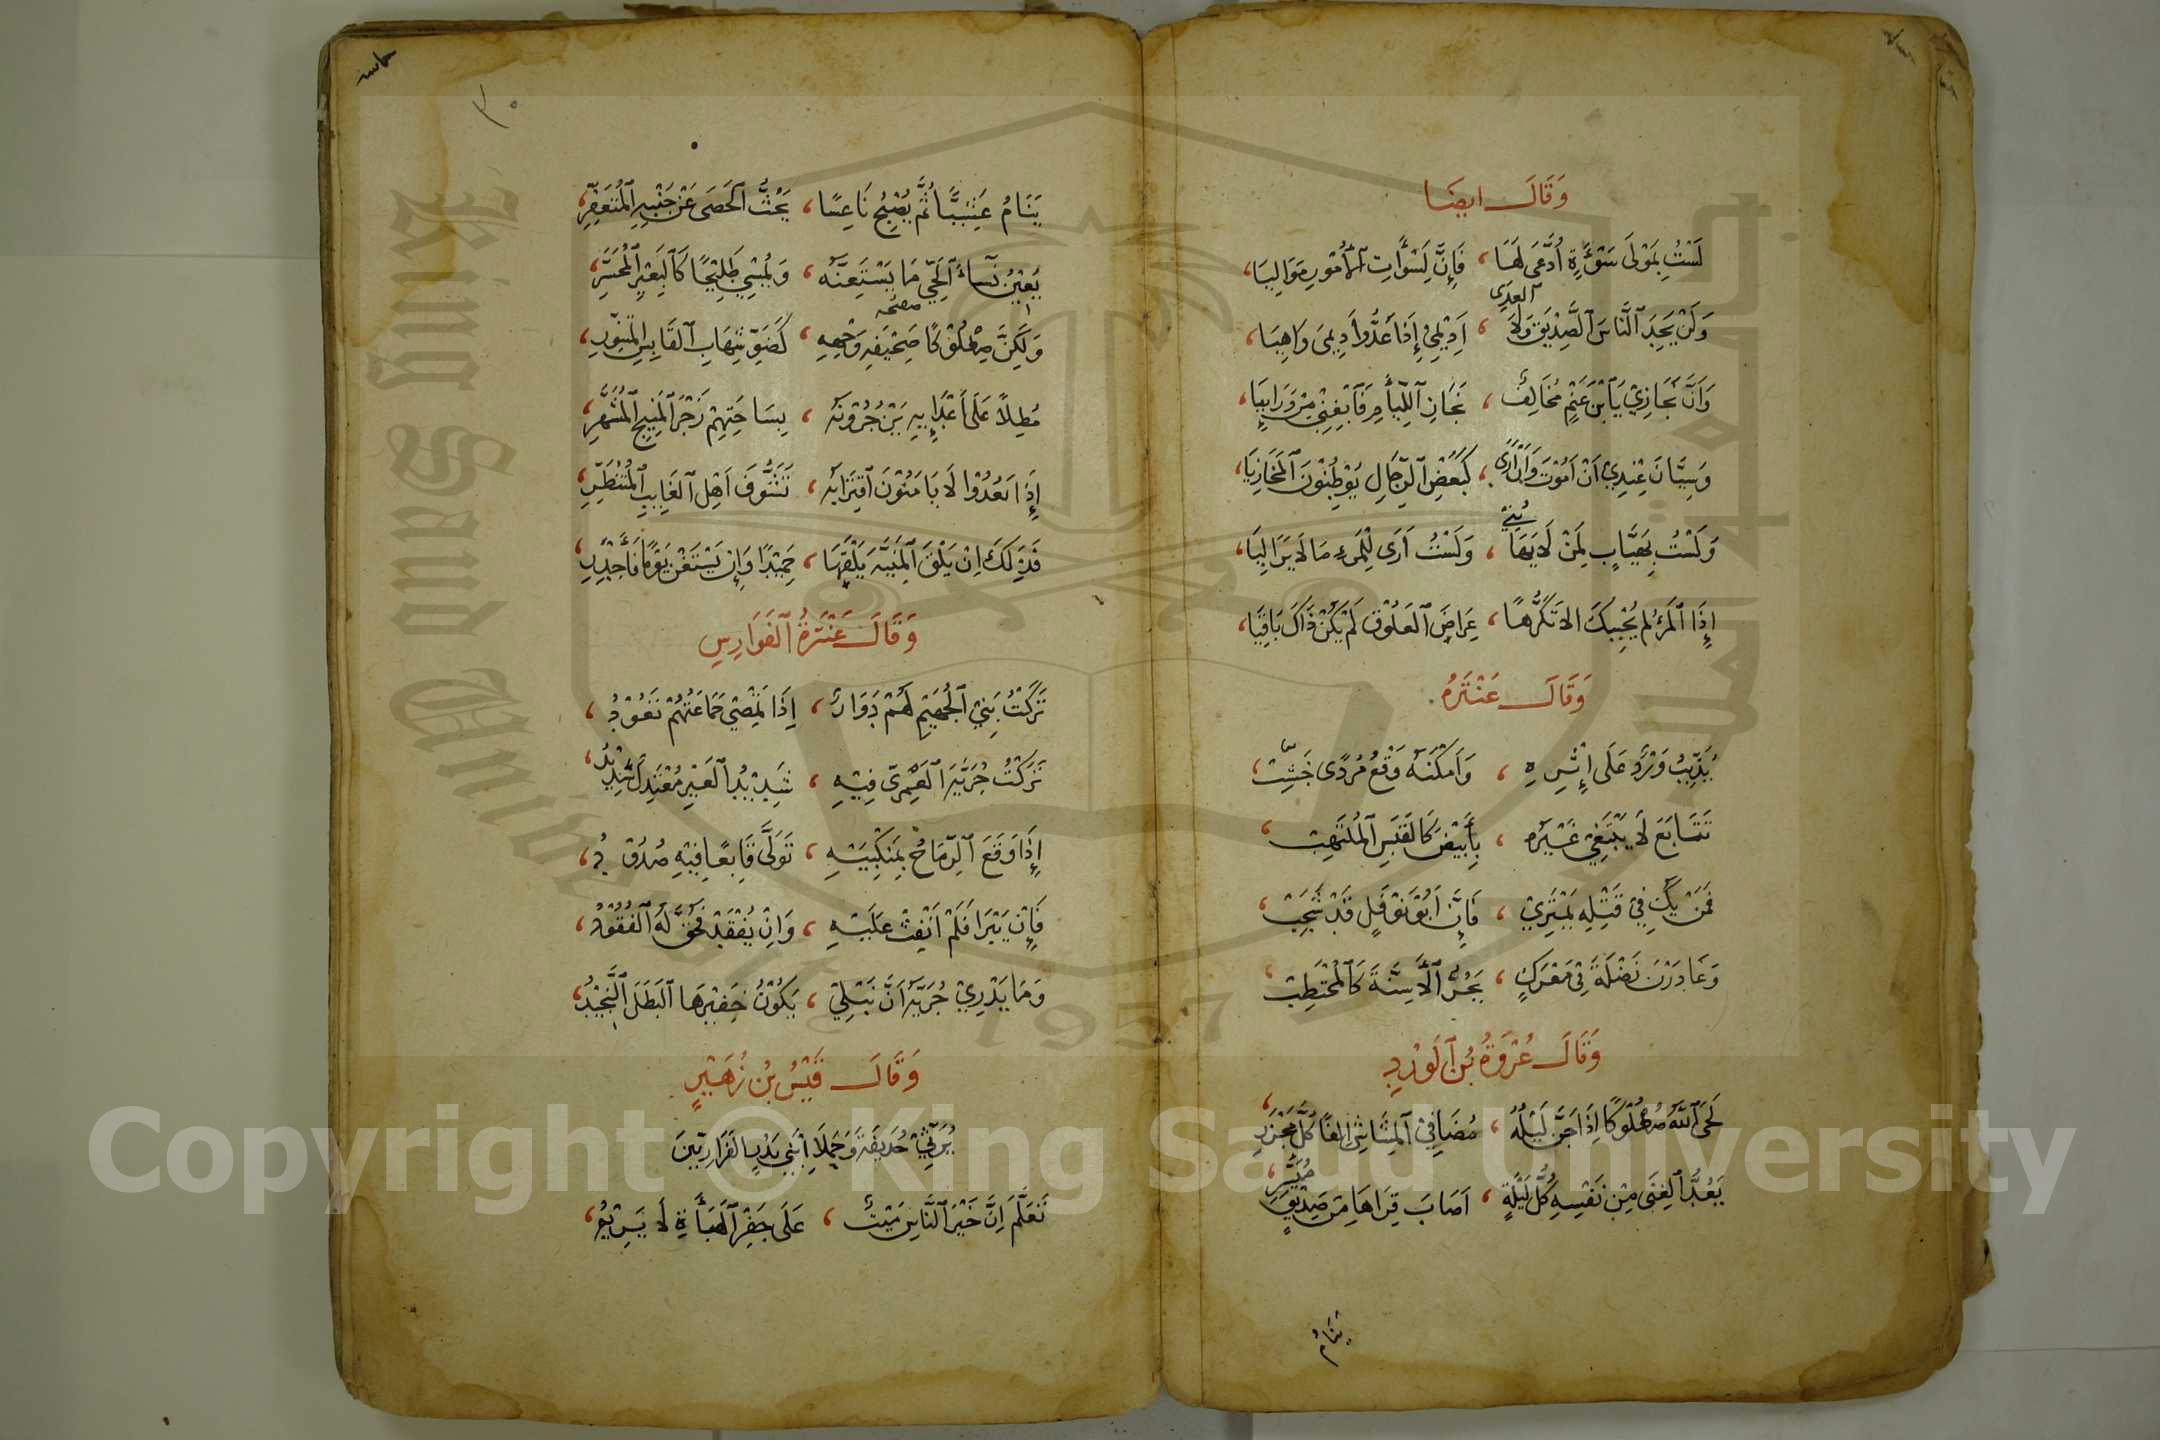 وَقَالَ ايضَا
لَسْتُ بِمَوْلَى سَوْءَةٍ اُدَّعَى لَهَا ، فَإِنَّ لِسَوْاٰتِ ٱلْأُمُوْرِ مَوَالِيَا ،
العِدَى
وَلَنْ يَجِدَ ٱلنَّاسُ ٱلصَّدِيْقُ وَلَا ، اَدِيْمِيْ إِذَا عَدُّوا دِيمِىَ وَاهِيَا ،
وَاَنَّ نَجَارِيْ يَا ٱبْنَ غَنْمٍ مُخَالِفٌ ، نَجَارَ ٱللِّئَامِ فَابْغِنِيْ مِنْ وَرَايِيَا ،
وَسِيَّانَ عِنْدِيْ اَنْ اَمُوْتَ وَاَنْ اُرَى ، كَبَعْضِ ٱلرِّجَالِ يُوْطِنُوْنَ ٱلْمَخَازِيَا ،
وَلَسْتُ بِهَيَّابٍ لِمَنْ لَا يَهَابُنِيْ ، وَلَسْتُ اَرَى لِلْمَرْءِ مَا لَا يَرَا لِيَا ،
إِذَا ٱلْمَرْءُ لم يُحْبِبْكَ الا تَكَرُّهًا ، عِرَاضَ ٱلْعَلُوْقِ لَمْ يَكُنْ ذَاكَ بَاقِيَا ،
وَقَالَ عَنْتَرَهُ
يُذَبِّبُ وَرْدٌ عَلَى إِثْرِهِ ، وَاَمْكَنَهُ وَقْعُ مُرْدًى خَشِبْ ،
تَتَابَعَ لَا يَبْتَغِيْ غَيْرَهُ ، بِأَبْيَضَ كَالْقَبَسِ ٱلْمُلْتَهِبْ ،
فَمَنْ يَكُ فِيْ قَتْلِهِ يَمْتَرِيْ ، فَإِنَّ اَبُوْ نَوْفَلٍ قَدْ شَجِبْ ،
وَغَادَرْنَ نَضْلَةَ فِيْ مَعْرَكٍ ، يَجُرُّ ٱلْأَسِنَّةَ كَٱلْمُحْتَطِبْ ،
وَقَالَ عُرْوَةُ بْنُ ٱلْوَرْدِ
لَحَى ٱللهُ صُعْلُوْكًا اِذَا جَنَّ لَيْلُهُ ، مُصَافِيَ ٱلْمُشَاشِ اٰلِفًا كُلَّ مَجْزَرِ ،
يَعُدُّ ٱلْغِنَى مِنْ نَفْسِهِ كُلَّ لَيْلَةٍ ، اَصَابَ قِرَاهَا مِنْ صَدِيْقٍ مُيَسَّرِ ،
يَنَامُ
٣٠
يَنَامُ عَشِيًّا ثُمَّ يُصْبِحُ نَاعِسًا ، يَحُتُّ ٱلْحَصَى عَنْ جَنْبِهِ ٱلْمُتَعَفِّرِ ،
يُعِيْنُ نِسَاءَ ٱلْحَيِّ مَا يَسْتَعِنَّهُ ، وَيُمْسِيْ طَلِيْحًا كَٱلْبَعِيْرِ ٱلْمُحَسَّرِ ،
وَلَكِنَّ صُعْلُوْكًا صَحِيْفَةُ وَجْهِهِ ، كَضَوْءِ شِهَابِ ٱلْقَابِسِ ٱلْمُتَنَوِّرِ ،
مُطِلًّا عَلَى اَعْدَائِهِ يَزْجُرُوْنَهُ ، بِسَاحَتِهِمْ زَجْرَ ٱلْمَنِيْحِ ٱلْمُشَهَّرِ ،
إِذَا بَعُدُوْا لَا يَامَنُوْنَ ٱقْتِرَابَهُ ، تَشَوُّفَ اَهْلِ ٱلْغَايِبِ ٱلْمُتَنَظَّرِ ،
فَذَلِكَ اِنْ يَلْقَ ٱلْمَنِيَّةَ يَلْقَهَا ، حَمِيْدًا وَاِنْ يَسْتَغْنِ يَوْمًا فَأَجْدِرِ
وَقَالَ عَنْتَرَةُ ٱلْفَوَارِسِ
تَرَكْتُ بَنِيْ ٱلْهُجَيْمِ لَهُمْ دَوَارٌ ، إِذَا تَمْضِيْ جَمَاعَتُهُمْ تَعُوْدُ ،
تَرَكْتُ جُرَيَّةَ ٱلْعَمْرِيَّ فِيْهِ ، شَدِيْدُ ٱلْعَيْرِ مُعْتَدِلٌ شَدِيْدُ ،
إِذَا وَقَعَ ٱلرِّمَاحُ بِمَنْكِبَيْهِ ، تَوَلَّى قَابِعًا فِيْهِ صُدُوْدُ ،
فَإِنْ يَبْرَا فَلَمْ اَنْفِثْ عَلَيْهِ ، وَاِنْ يُفْقَدْ فَحُقَّ لَهُ ٱلْفُقُوْدُ ،
وَمَا يَدْرِيْ جُرَيَّةُ اَنَّ نَبْلِيْ ، يَكُوْنُ جَفِيْرَهَا ٱلْبَطَلُ ٱلنَّجِيْدُ ،
وَقَالَ قَيْسُ بْنُ زُهَيْرٍ
يُرَثِّيْ حُذَيْفَةَ وَحَمَلًا اِبْنَيْ بَدْرٍ الفَزَارِيَّيْنَ
تَعَلَّمْ اِنَّ خَيْرَ ٱلنَّاسِ مَيْتٌ ، عَلَى جَفْرِ ٱلْهَبَأَةِ لَا يَرِيْمُ ،
King Saud University
1957
Copyright © King Saud University